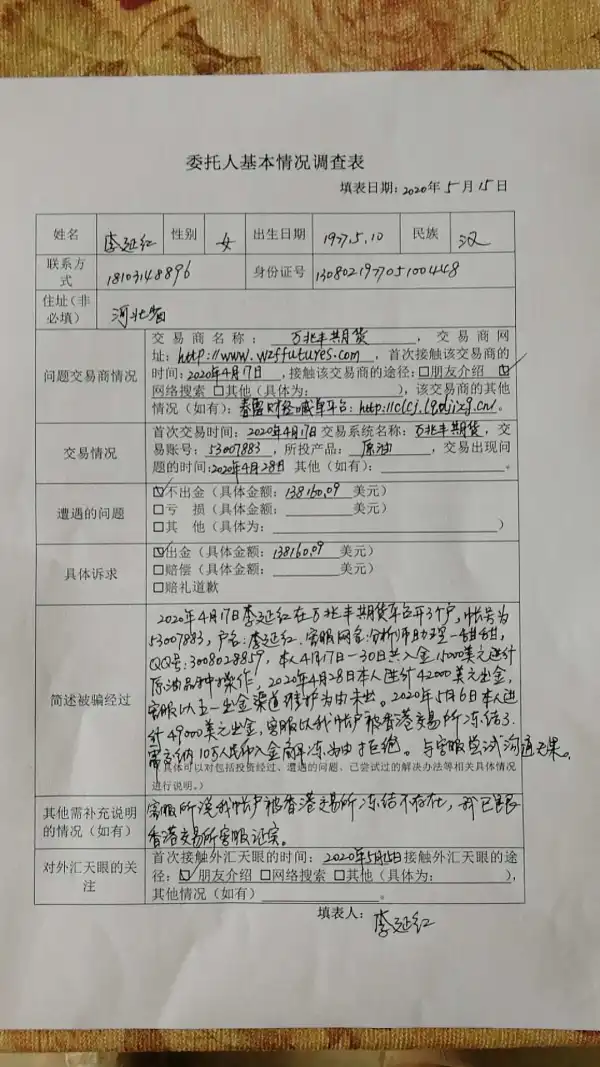 委托人基本情况调查表
填表日期：2020年5月15日
姓名 李延红 性别 女 出生日期 1977.5.10 民族 汉
联系方式 18103148896 身份证号 130802197705100448
住址（非必填） 河北省
问题交易商情况
交易商名称：万兆丰期货，交易商网
址：http://www.wzffutures.com，首次接触该交易商的
时间：2020年4月17日，接触该交易商的途径：□朋友介绍 ☑
网络搜索 □其他（具体为：），该交易商的其他
情况（如有）：财经喊单平台：
交易情况
首次交易时间：2020年4月17日 交易系统名称：万兆丰期货，交
易账号：53007883，所投产品：原油，交易出现问
题的时间：2020年4月28日 其他（如有）：。
遭遇的问题
☑不出金（具体金额：138160.09美元）
□亏 损（具体金额：美元）
□其 他（具体为：）
具体诉求
☑出金（具体金额：138160.09美元）
□赔偿（具体金额：美元）
□赔礼道歉
简述被骗经过
2020年4月17日李延红在万兆丰期货平台开了个户，帐号为
53007883，户名：李延红．客服网名：分析师助理-甜甜，
QQ号：3008028859，本人4月17日-30日共入金15000美元进行
原油品种操作，2020年4月28日本人进行42000美元出金，
客服以五一出金渠道维护为由未出。2020年5月6日本人进
行49000美元出金，客服以我帐户被香港交易所冻结了．
需交纳10万人民币入金解冻为由拒绝。与客服尝试沟通无果。
（具体可以对包括投资经过、遭遇的问题、已尝试过的解决办法等相关具体情况
进行说明。）
其他需补充说明的情况（如有）
客服所说我帐户被香港交易所冻结不存在，我已跟
香港交易所客服证实。
对外汇天眼的关注
首次接触外汇天眼的时间：2020年5月15日接触外汇天眼的途
径：☑朋友介绍 □网络搜索 □其他（具体为：），
其他情况（如有）。
填表人：李延红